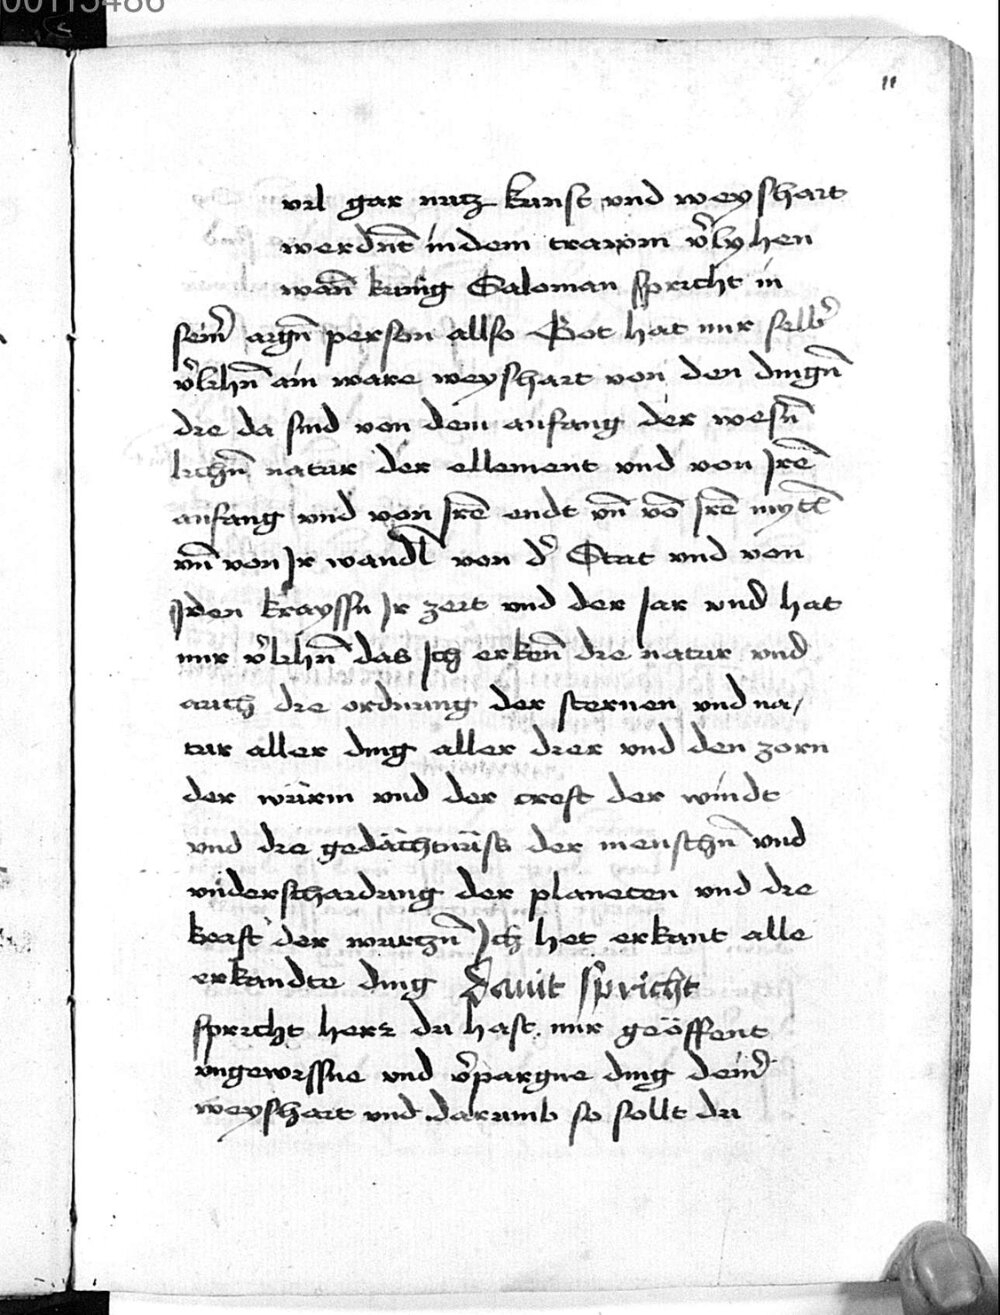 00115486
11
vil gar nucz kunst vnd weyshait
werdnt in dem trawm v̄lyhen
wan̄ kunig Saloman spricht in
sein̄ aign̄ person allso Got hat mir selb̄
v̄lihn̄ ain ware weyshait von den dingn̄
die da sind von dem anfang der wesn̄
lichn̄ natur der ellement vnd von Jrē
anfang vnd von Jrē endt vn̄ vō Jrē mytl̄
vn̄ von Jr wandl̄ von d̄ Stat vnd von
Jren krayssn Jr zeit vnd der Jar vnd hat
mir v̄lihn̄ das Jch erken̄ die natur vnd
auch die ordnung der sternen vnd na/
tur aller ding aller dier vnd den zorn
der würm vnd der creft der windt
vnd die gedächtnüss der menschn̄ vnd
vnderschaidung der planeten vnd die
kraft der wurczn̄ Jch het erkant alle
erkandte ding Dauit spricht
spricht herr du hast mir geöffent
vngewissne vnd v̄pargne ding dein̄
weyshait vnd darumb so sollt du